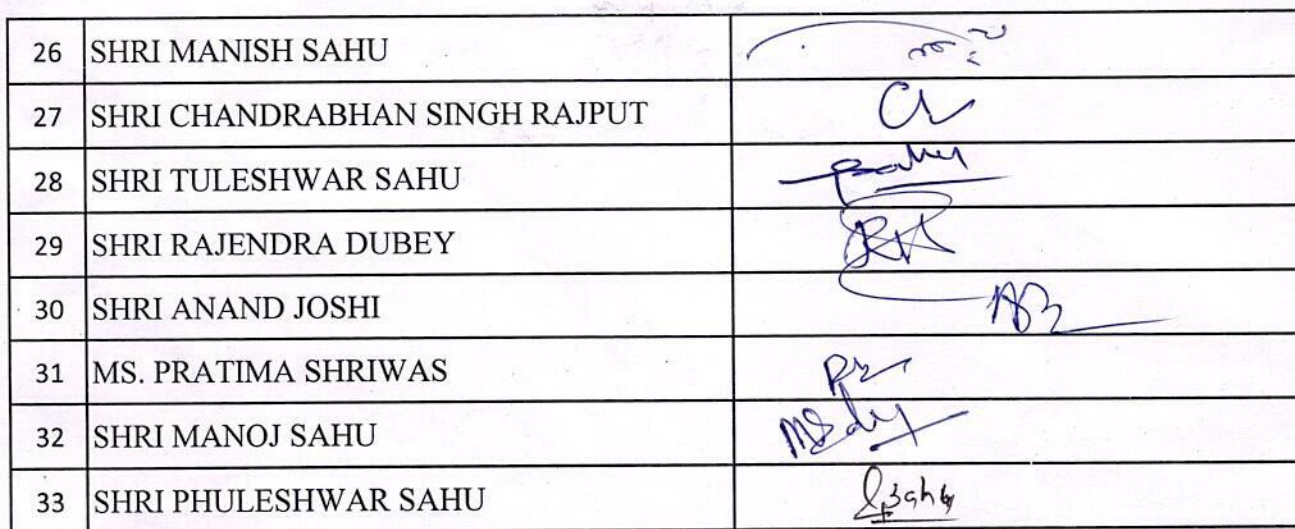 26 SHRI MANISH SAHU
27 SHRI CHANDRABHAN SINGH RAJPUT
28 SHRI TULESHWAR SAHU
29 SHRI RAJENDRA DUBEY
30 SHRI ANAND JOSHI
31 MS. PRATIMA SHRIWAS
32 SHRI MANOJ SAHU
33 SHRI PHULESHWAR SAHU